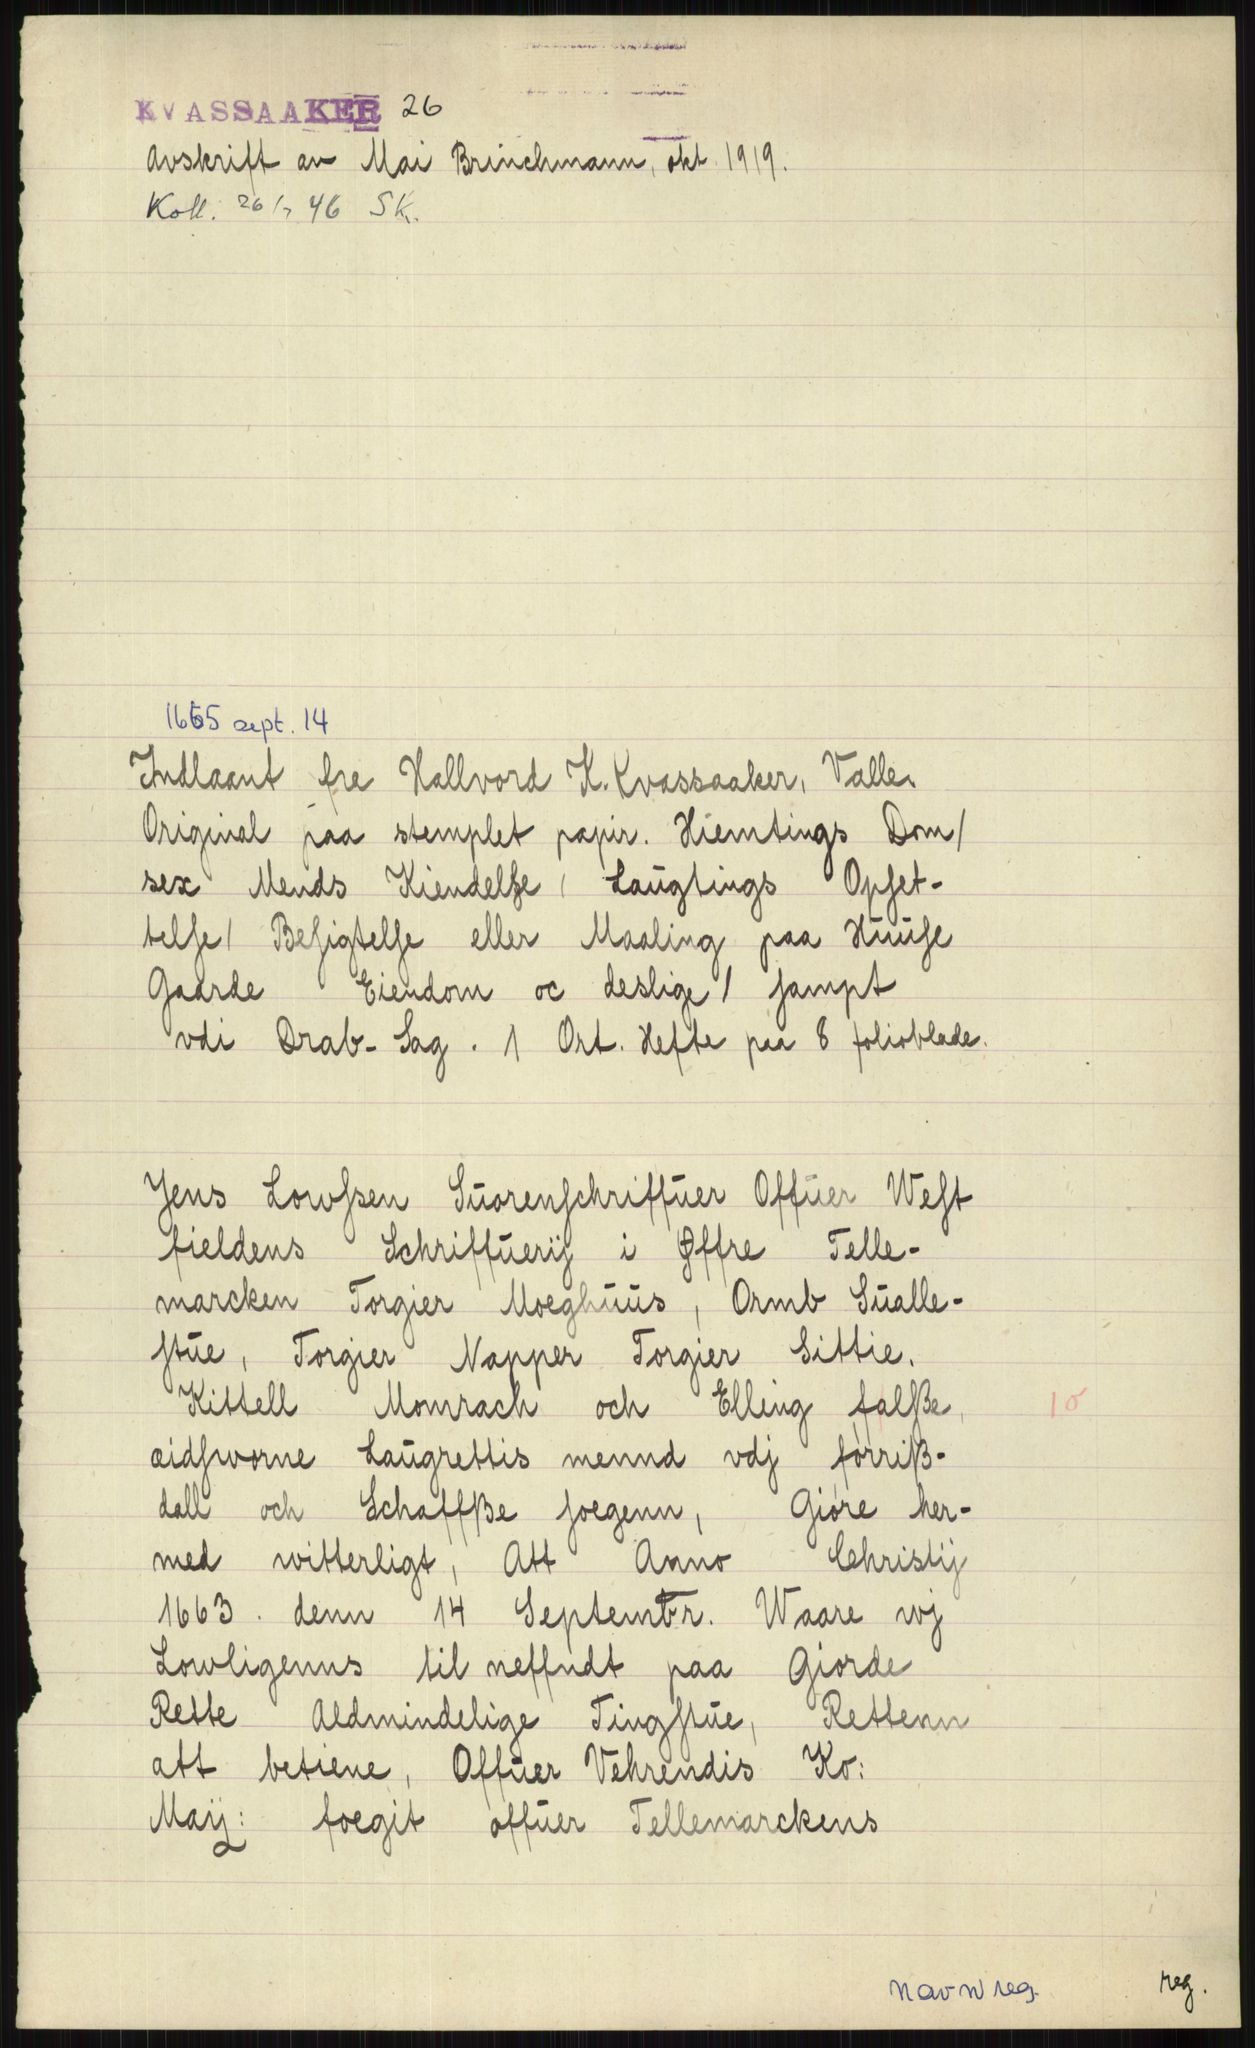 KVASSAAKER 26
Avskrift av Mai Brinchmann, okt. 1919.
Koll. 26/7 46 SK.
1665 sept. 14
Indlaant fra Hallvord K. Kvassaaker, Valle.
Original paa stemplet papir. Hiemtings Dom/
sex Mends Kiendelſe / Laugtings Opſet-
telſe/ Beſigtelſe eller Maaling paa Huuſe
Gaarde Eiendom oc deslige/ ſampt
vdi Drab-Sag. 1 Ort. Hefte paa 8 folioblade.
Jens Lowſsen Suorenſchriffuer Offuer Weſt
fieldens Schriffuerij i Øffre Telle-
marcken Torgier Moeghuus, Ormb Sualle-
ſtue, Torgier Napper Torgier Sittie.
Kittell Momrach och Elling falße, 10
æidſworne Laugrettis mennd vdj forriß-
dall och Schaffße ſoegenn, Giøre her-
med witterligt, Att Anno Christij
1663. denn 14 Septembr. Waare wj
Lowligenns til neffndt paa Giorde
Rette Aldmindelige Tingſtue, Rettenn
att betiene, Offuer Vehrendis Ko:
Maij: foegit offuer Tellemarckens
navnreg. reg.